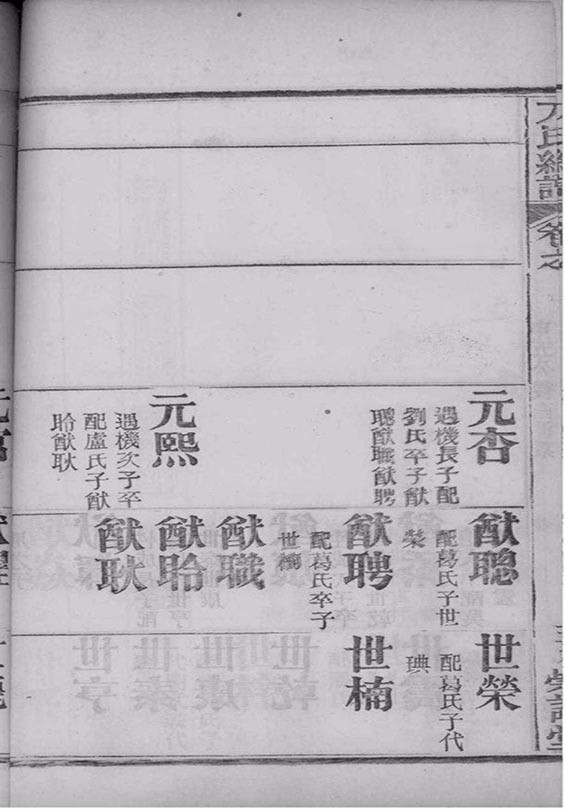 方氏總譜
卷之
元杏
遇機長子配
劉氏卒子猷
聰猷職猷聘
元熙
遇機次子卒
配盧氏子猷
聆猷耿
猷聰
配葛氏子世
榮
猷聘
配葛氏卒子
世楠
猷職
猷聆
猷耿
世榮
配葛氏子代
璵
世楠